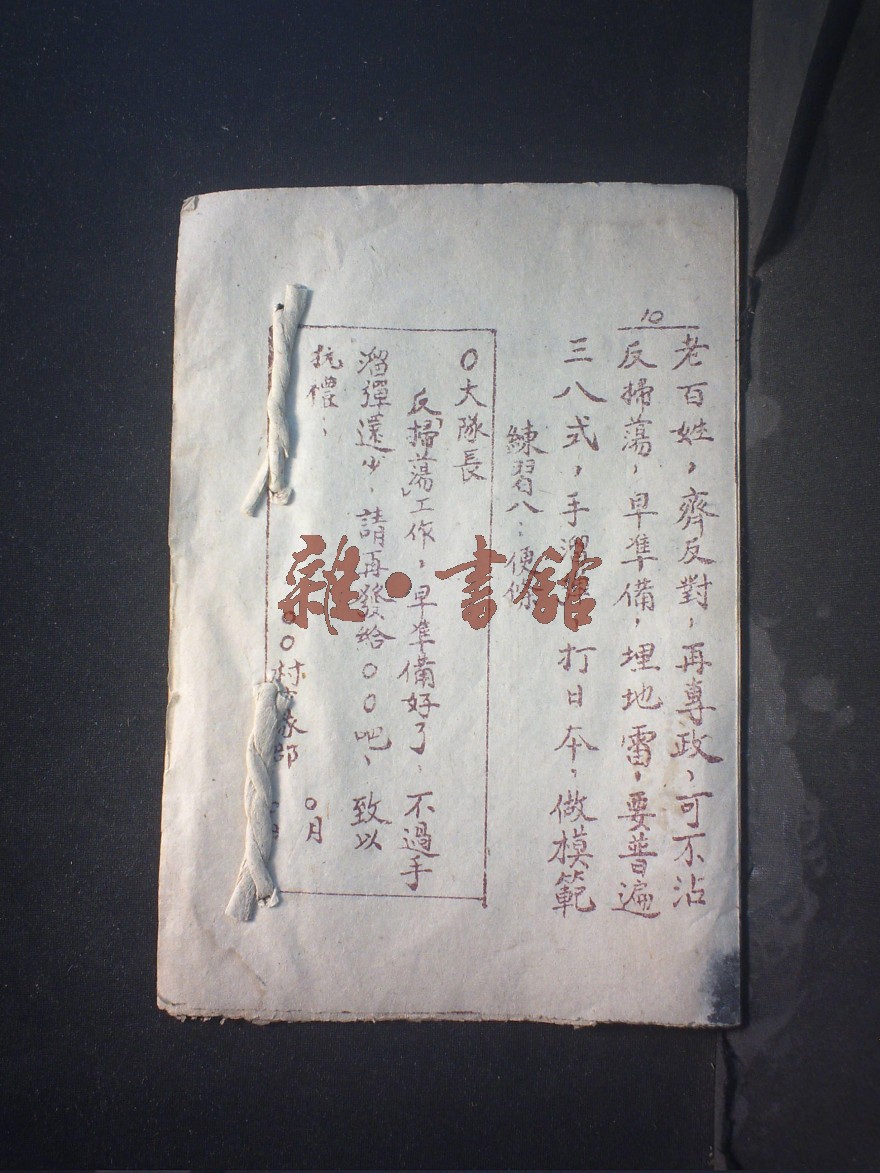 10
老百姓，齊反對，再專政，可不沾
反掃蕩，早準備，埋地雷，要普遍
三八式，手溜彈，打日本，做模範
練習八：便條
〇大隊長
反「掃蕩」工作，早準備好了，不過手
溜彈還少，請再發給〇〇吧，致以
抗禮；
〇〇村
部
〇月
雜·書舘